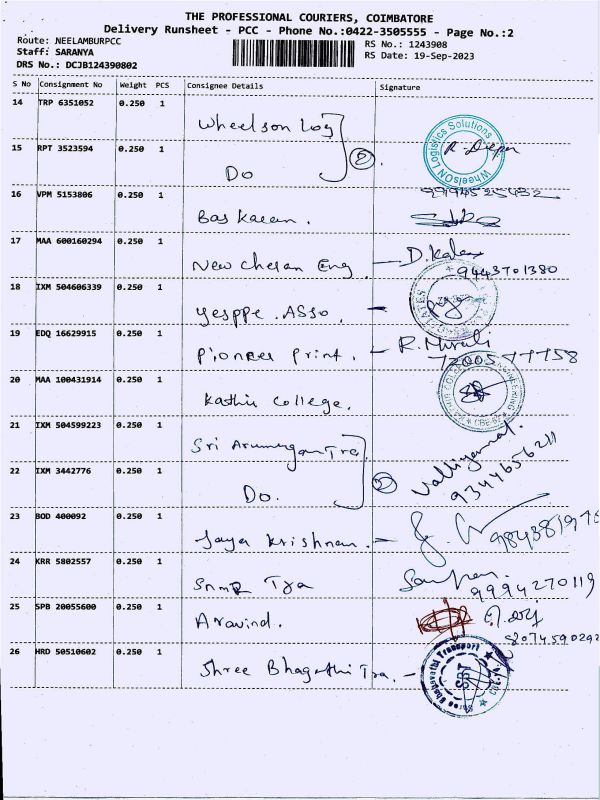 THE PROFESSIONAL COURIERS, COIMBATORE
Delivery Runsheet - PCC - Phone No.:0422-3505555 - Page No.:2
Route: NEELAMBURPCC
Staff: SARANYA
DRS No.: DCJB124390802
RS No.: 1243908
RS Date: 19-Sep-2023
S No Consignment No Weight PCS Consignee Details Signature
14 TRP 6351052 0.250 1
Wheelson Log
15 RPT 3523594 0.250 1
Do 2
WheelsON Logistics Solutions
16 VPM 5153806 0.250 1
Baskaran.
17 MAA 600160294 0.250 1
New Cheran Eng - D. Kalai
9443701380
18 IXM 504606339 0.250 1
Yesppe . Asso. -
19 EDQ 16629915 0.250 1
Pioneer Print. - R. Murali
7200577758
20 MAA 100431914 0.250 1
Kathir College.
21 IXM 504599223 0.250 1
Sri Arumugan Tra
22 IXM 3442776 0.250 1
Do. 2
Valliyammal.
9344656211
23 BOD 400092 0.250 1
Jaya Krishnan. -
24 KRR 5802557 0.250 1
SNMR Tra
9994270119
25 SPB 20055600 0.250 1
Aravind.
8074590292
26 HRD 50510602 0.250 1
Shree Bhagathi Tra. -
Shree Bhagavathi Transport
SBT